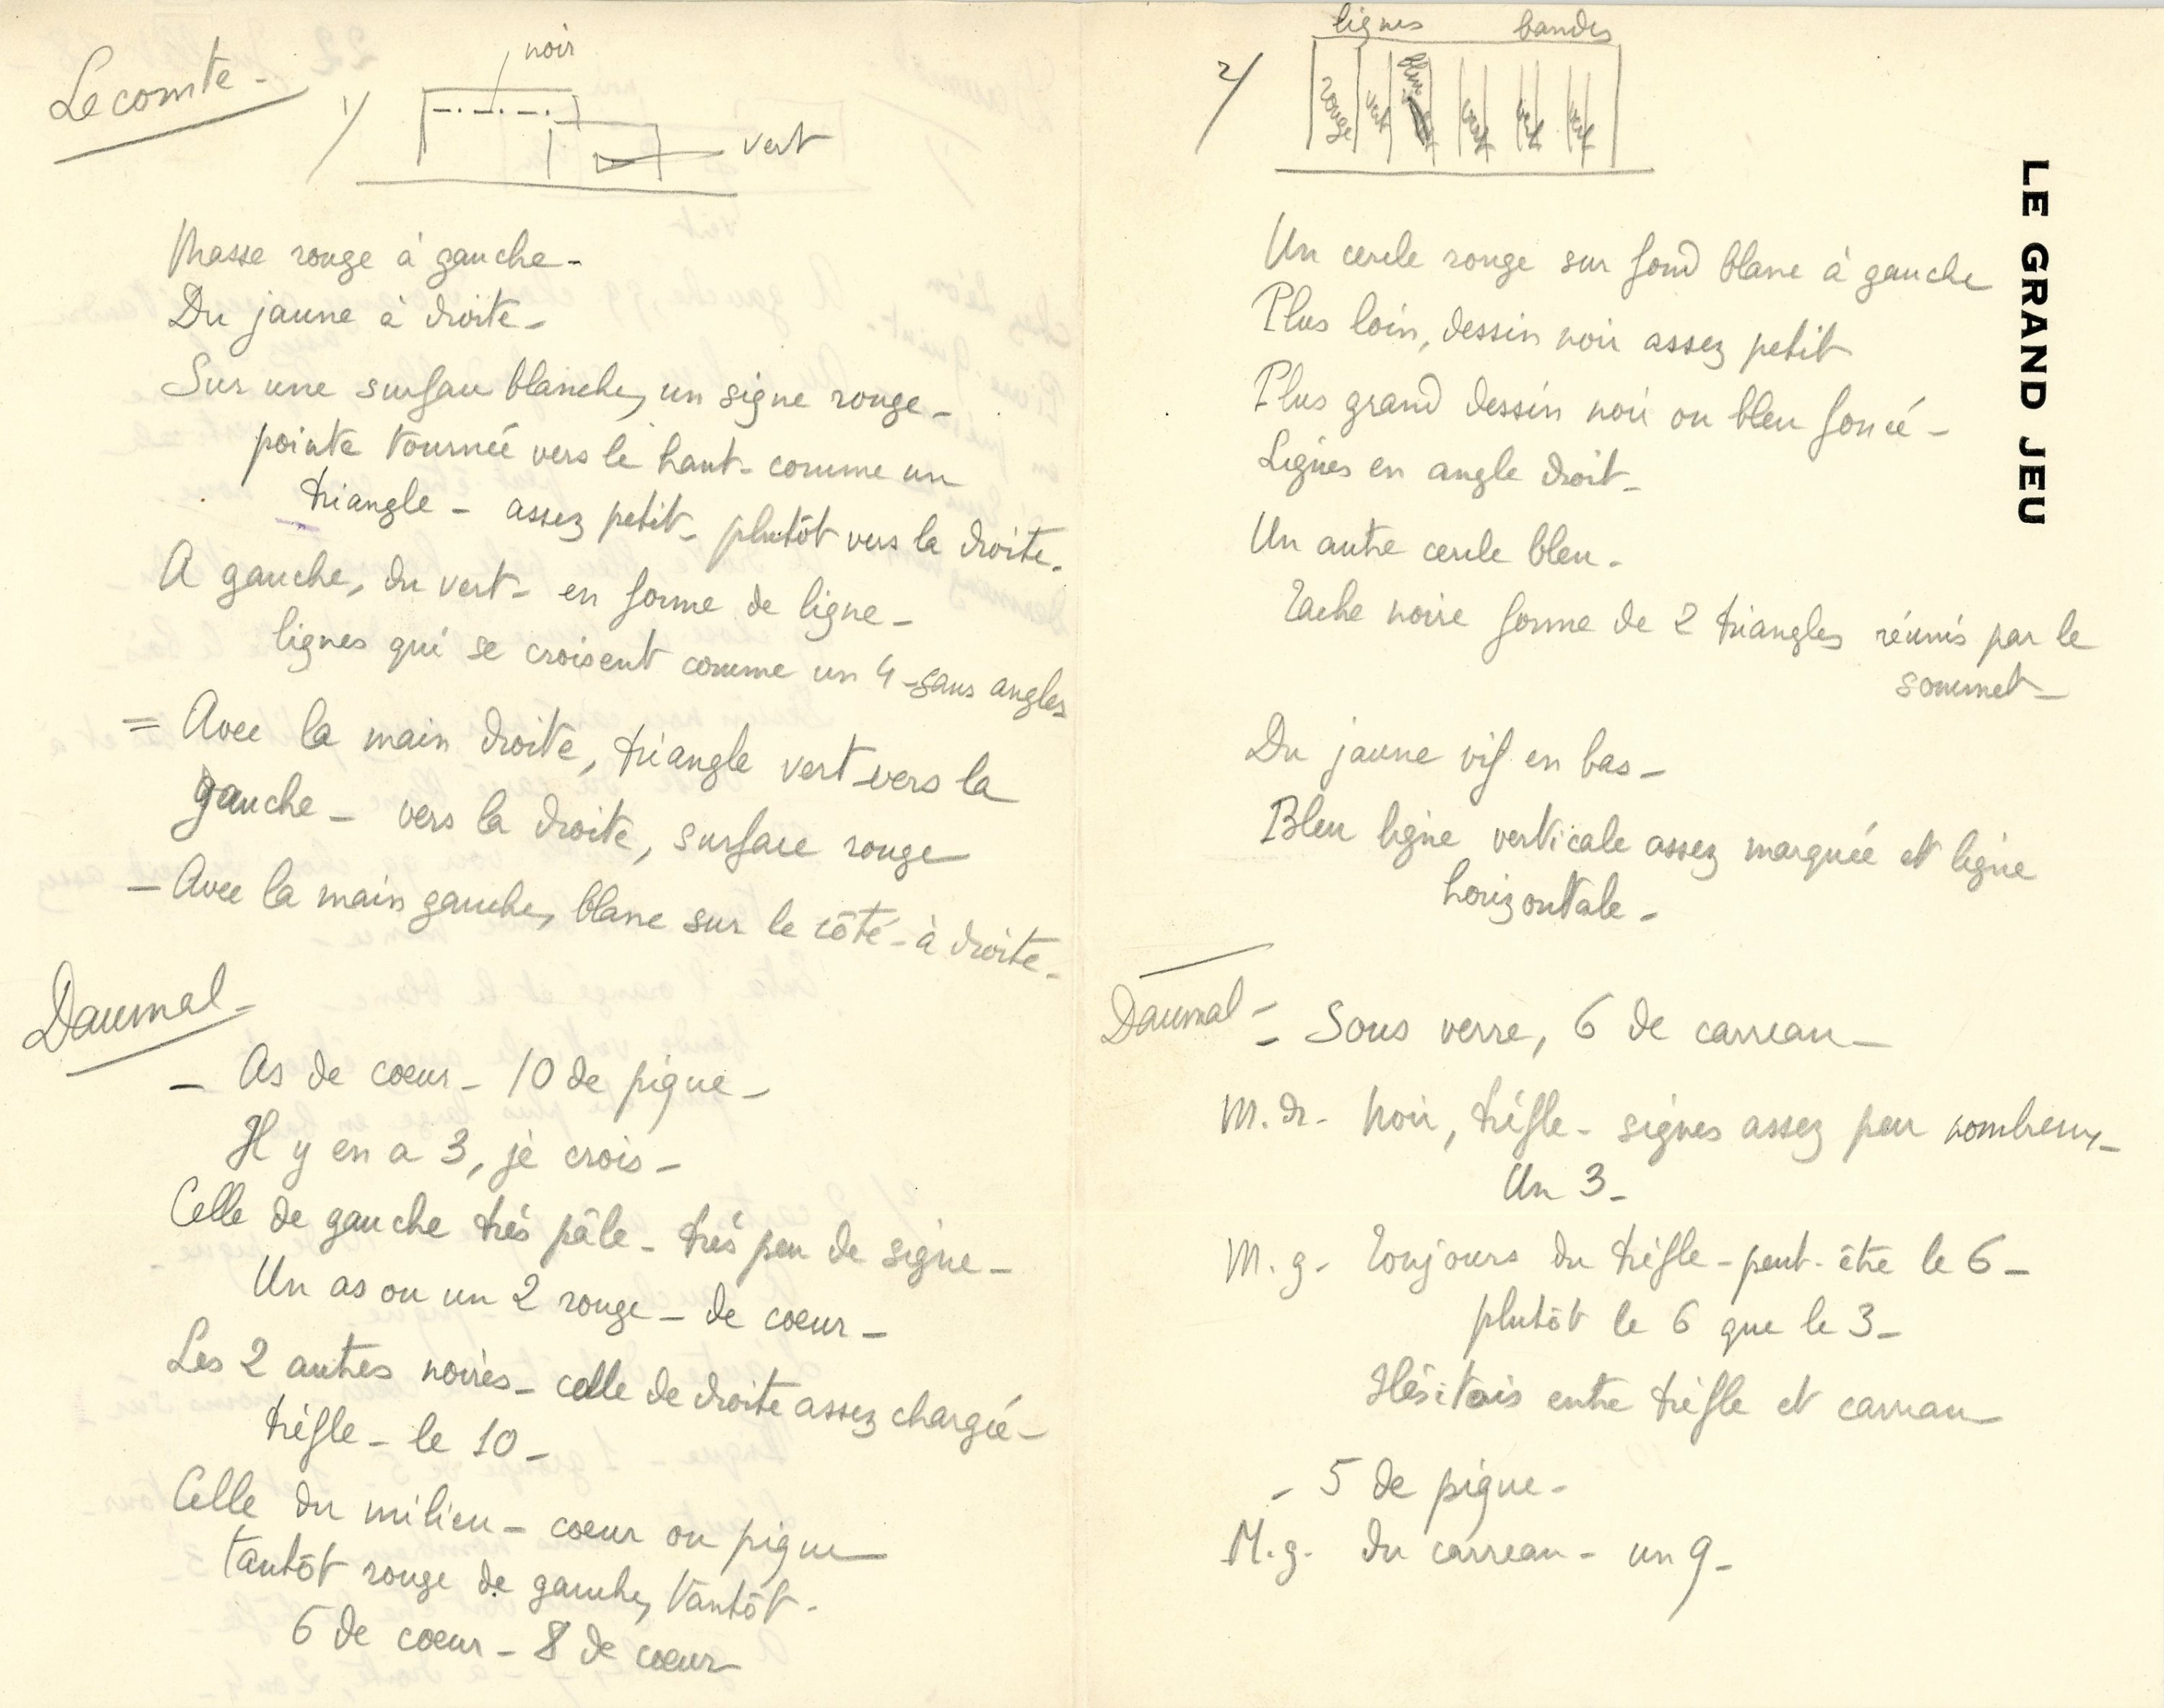 Lecomte -
1/
noir
vert
Masse rouge à gauche -
Du jaune à droite -
Sur une surface blanche, un signe rouge -
pointe tournée vers le haut - comme un
triangle - assez petit - plutôt vers la droite.
A gauche, du vert - en forme de ligne -
lignes qui se croisent comme un 4 - sans angles
= Avec la main droite, triangle vert vers la
gauche - vers la droite, surface rouge
- Avec la main gauche, blanc sur le côté - à droite -
Daumal -
- As de coeur - 10 de pique -
Il y en a 3, je crois -
Celle de gauche très pâle - très peu de signe -
Un as ou un 2 rouge - de coeur -
Les 2 autres noires - celle de droite assez chargée -
trèfle - le 10 -
Celle du milieu - coeur ou pique
tantôt rouge de gauche, tantôt -
6 de coeur - 8 de coeur
2/
lignes bandes
rouge vert bleu vert vert vert
Un cercle rouge sur fond blanc à gauche
Plus loin, dessin noir assez petit
Plus grand dessin noir ou bleu foncé -
Lignes en angle droit -
Un autre cercle bleu -
Tache noire forme de 2 triangles réunis par le
sommet -
Du jaune vif en bas -
Bleu ligne verticale assez marquée et ligne
horizontale -
Daumal = Sous verre, 6 de carreau -
M. dr. Noir, trèfle - signes assez peu nombreux -
Un 3 -
M. g. Toujours du trèfle - peut-être le 6 -
plutôt le 6 que le 3 -
Hésitais entre trèfle et carreau
- 5 de pique -
M. g. du carreau - un 9 -
LE GRAND JEU